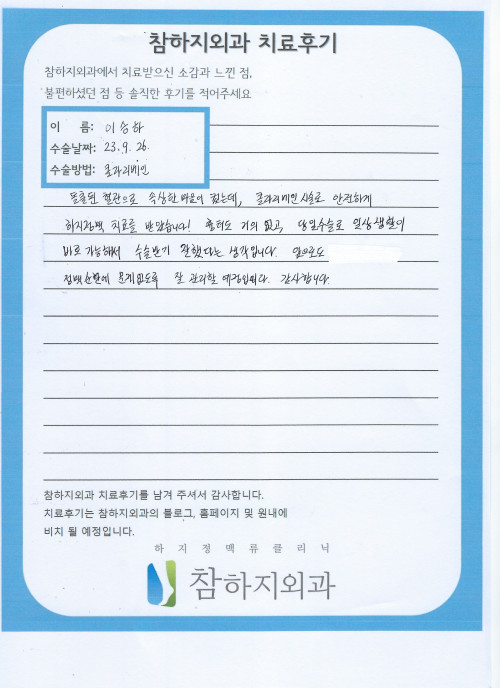 참하지외과 치료후기
참하지외과에서 치료받으신 소감과 느낀 점,
불편하셨던 점 등 솔직한 후기를 적어주세요
이 름: 이승하
수술날짜: 23.9.26.
수술방법: 클라리베인
돌출된 혈관으로 속상한 마음이 컸는데, 클라리베인 시술로 안전하게
하지정맥 치료를 받았습니다! 흉터도 거의 없고, 당일수술로 일상생활이
바로 가능해서 수술받기 잘했다는 생각입니다. 앞으로도
정맥순환에 문제없도록 잘 관리할 예정입니다. 감사합니다.
참하지외과 치료후기를 남겨 주셔서 감사합니다.
치료후기는 참하지외과의 블로그, 홈페이지 및 원내에
비치 될 예정입니다.
하지정맥류클리닉
참하지외과